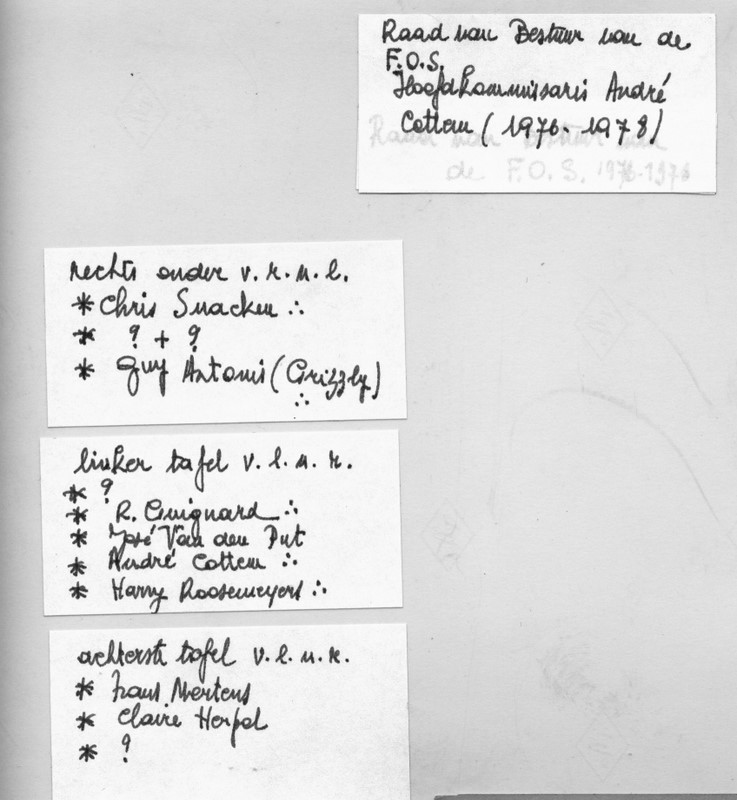 Raad van Bestuur van de
F.O.S.
Hoofdkommissaris André
Cottem (1976-1978)
Raad van Bestuur van
de F.O.S. 1976-1978
rechts onder v.r.n.l.
* Chris Snacken ∴
* ? + ?
* Guy Antonis (Grizzly)
∴
linker tafel v.l.n.r.
* ?
* R. Guignard ∴
* José Van den Put
* André Cottem ∴
* Harry Roosemeyers ∴
achterste tafel v.l.n.r.
* Frans Mertens
* Claire Herpol
* ?